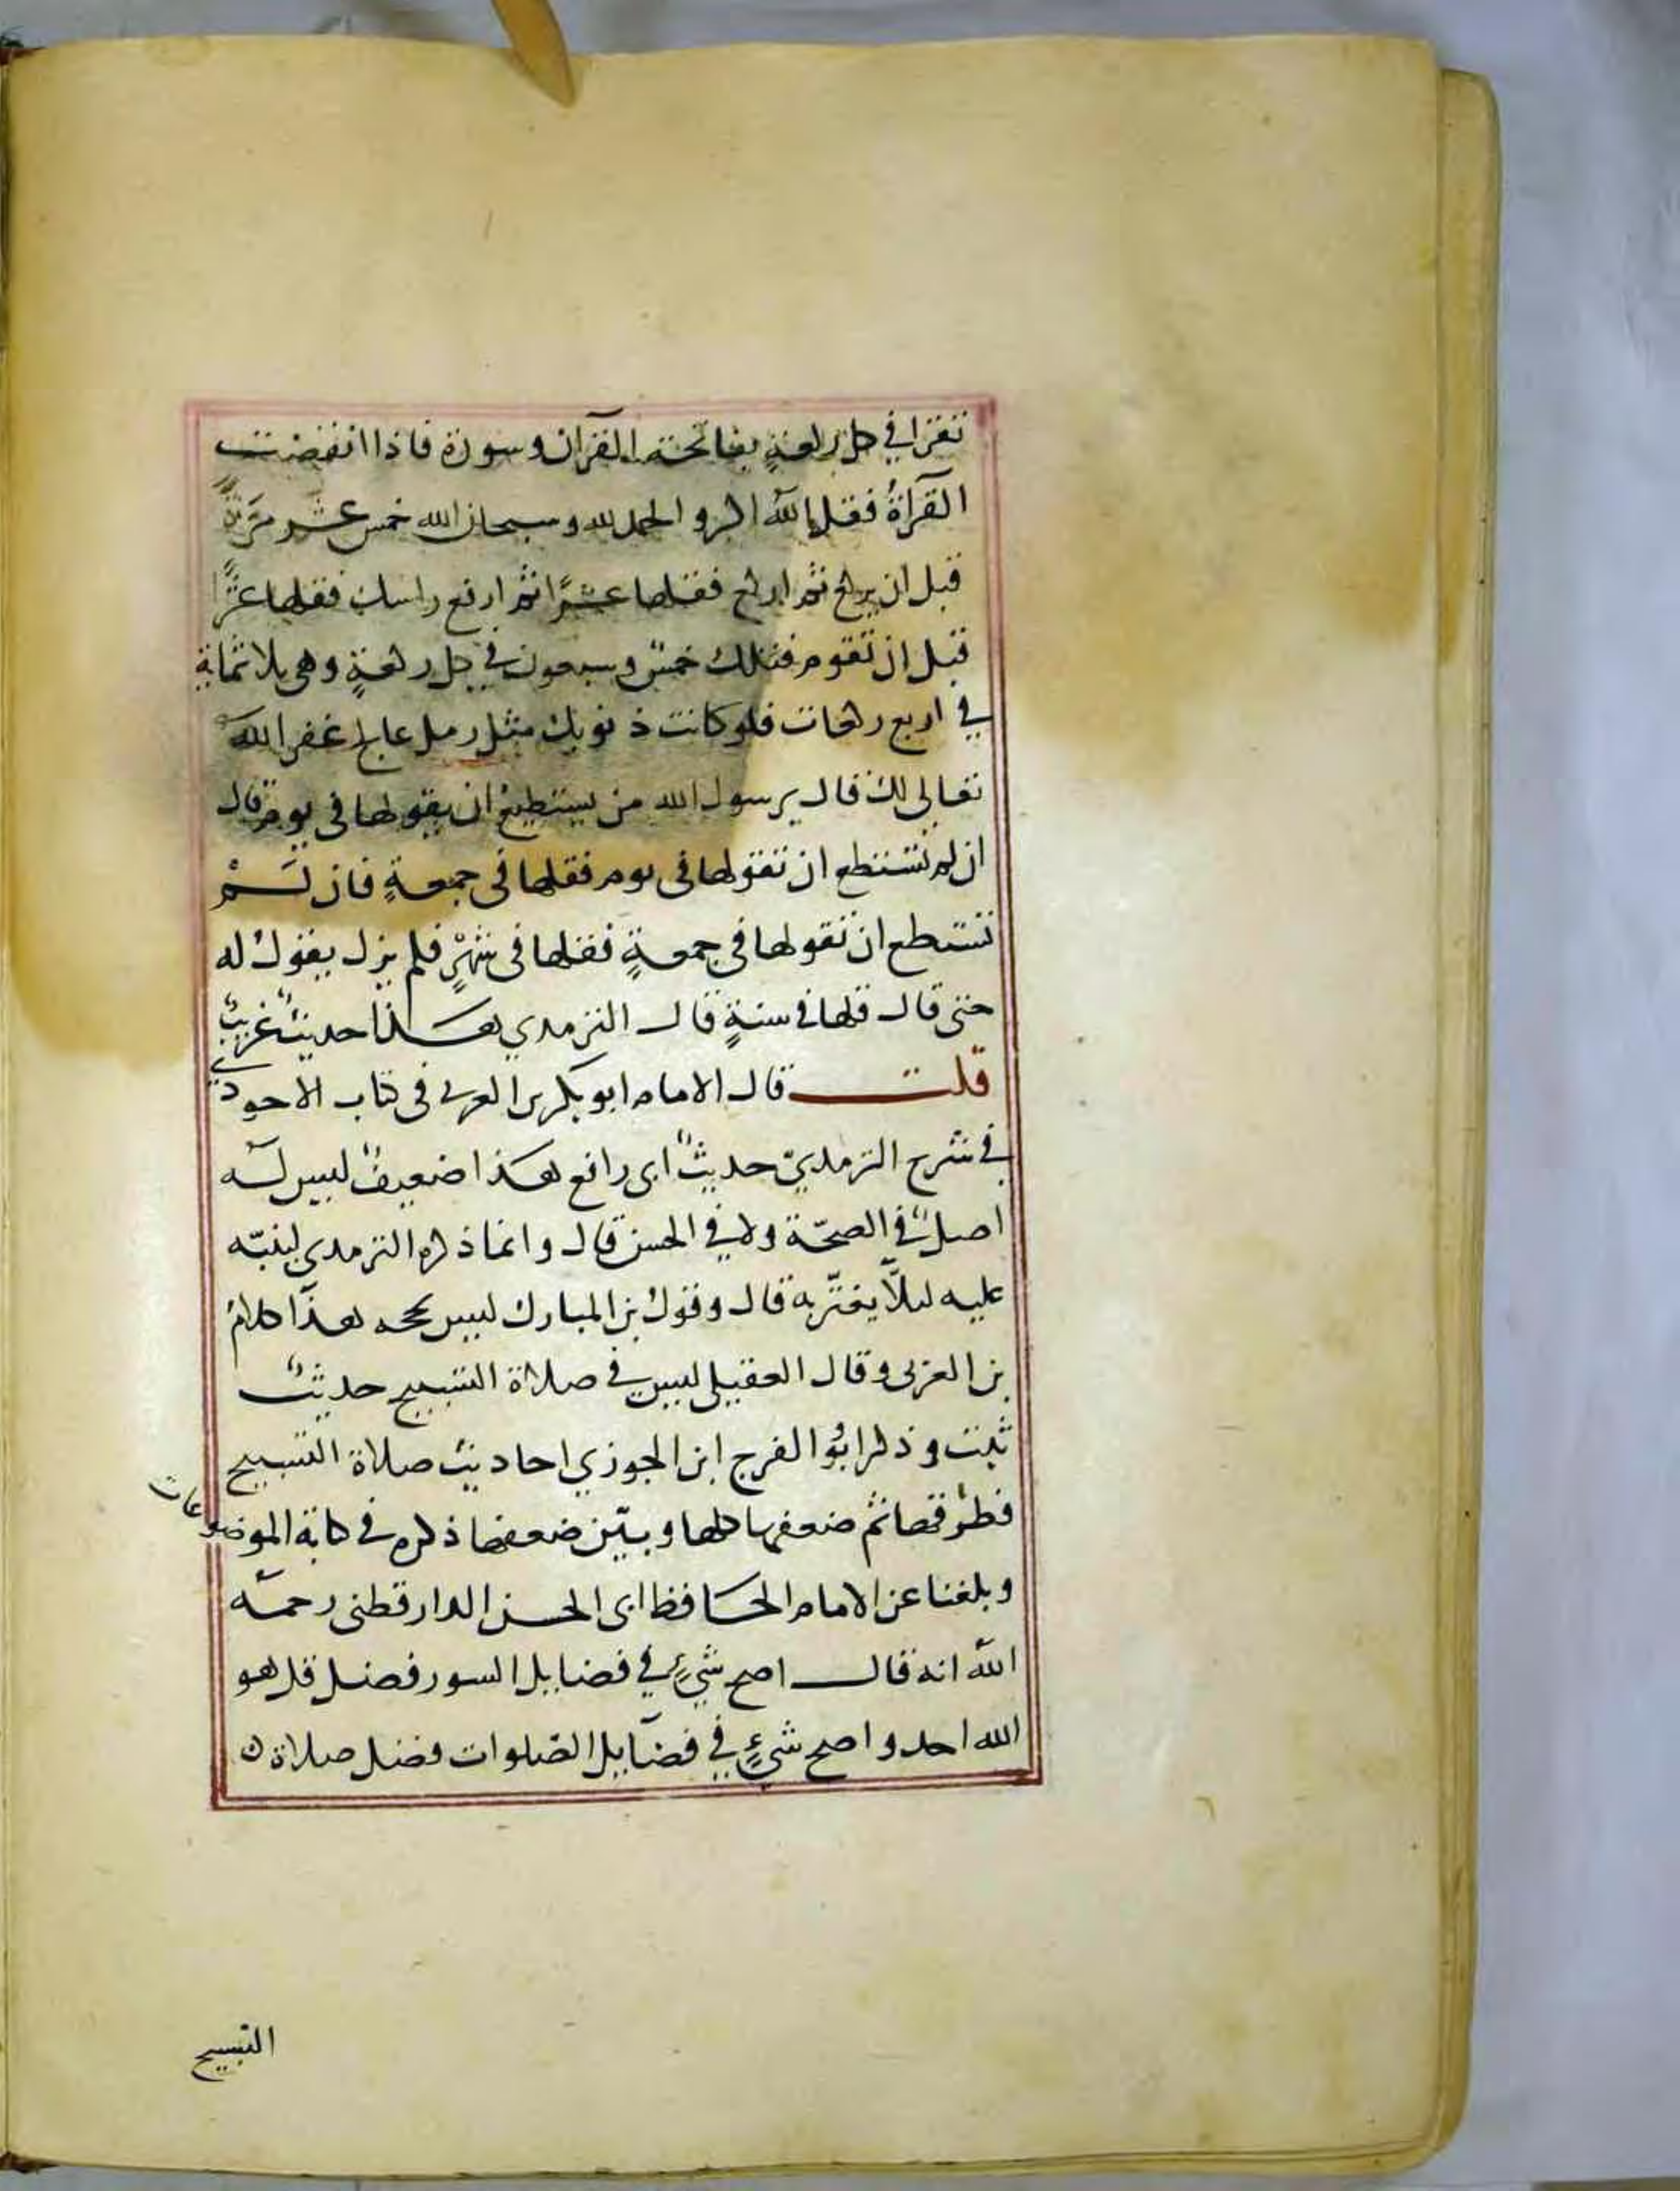 تقرا في كل ركعةٍ بفاتحة القرآن وسورة فاذا انقضت
القرآةُ فقل الله اكبر والحمد لله وسبحان الله خمس عشر مرّةً
قبل ان يركع ثم اركع فقلها عشرًا ثم ارفع راسك فقلها عشرًا
قبل ان تقوم فتلك خمس وسبعون في كل ركعةٍ وهي ثلاثماية
في اربع ركعات فلو كانت ذنوبك مثل رمل عالج غفر الله
تعالى لك قال يرسول الله من يستطيع ان يقولها في يوم قال
ان لم تستطع ان تقولها في يوم فقلها في جمعةٍ فان لم
تستطع ان تقولها في جمعةٍ فقلها في شهرٍ فلم يزل يقول له
حتى قال قلها في سنةٍ قال الترمدي هذا حديثٌ غريبٌ
قلت قال الامام ابو بكر بن العربي في كتاب الاحودي
في شرح الترمديّ حديثُ ابي رافع هذا ضعيفٌ ليس له
اصلٌ في الصحّة ولا في الحسن قال وانما ذكره الترمدي لينبّه
عليه ليلّا يغترّ به قال وقول بن المبارك ليس بحجه هذا كلامُ
بن العربي وقال العقيلي ليس في صلاة التسبيح حديثٌ
ثبت وذكر ابُو الفرج ابن الجوزي احاديث صلاة التسبيح
فطرقها ثم ضعفها كلها وبيّن ضعفها ذكره في كتابه الموضوعات
وبلغنا عن الامام الحافظ ابي الحسن الدارقطني رحمه
الله انه قال اصح شيءٍ في فضايل السور فضل قل هو
الله احد واصح شيءٍ في فضايل الصلوات فضل صلاة
التسبيح